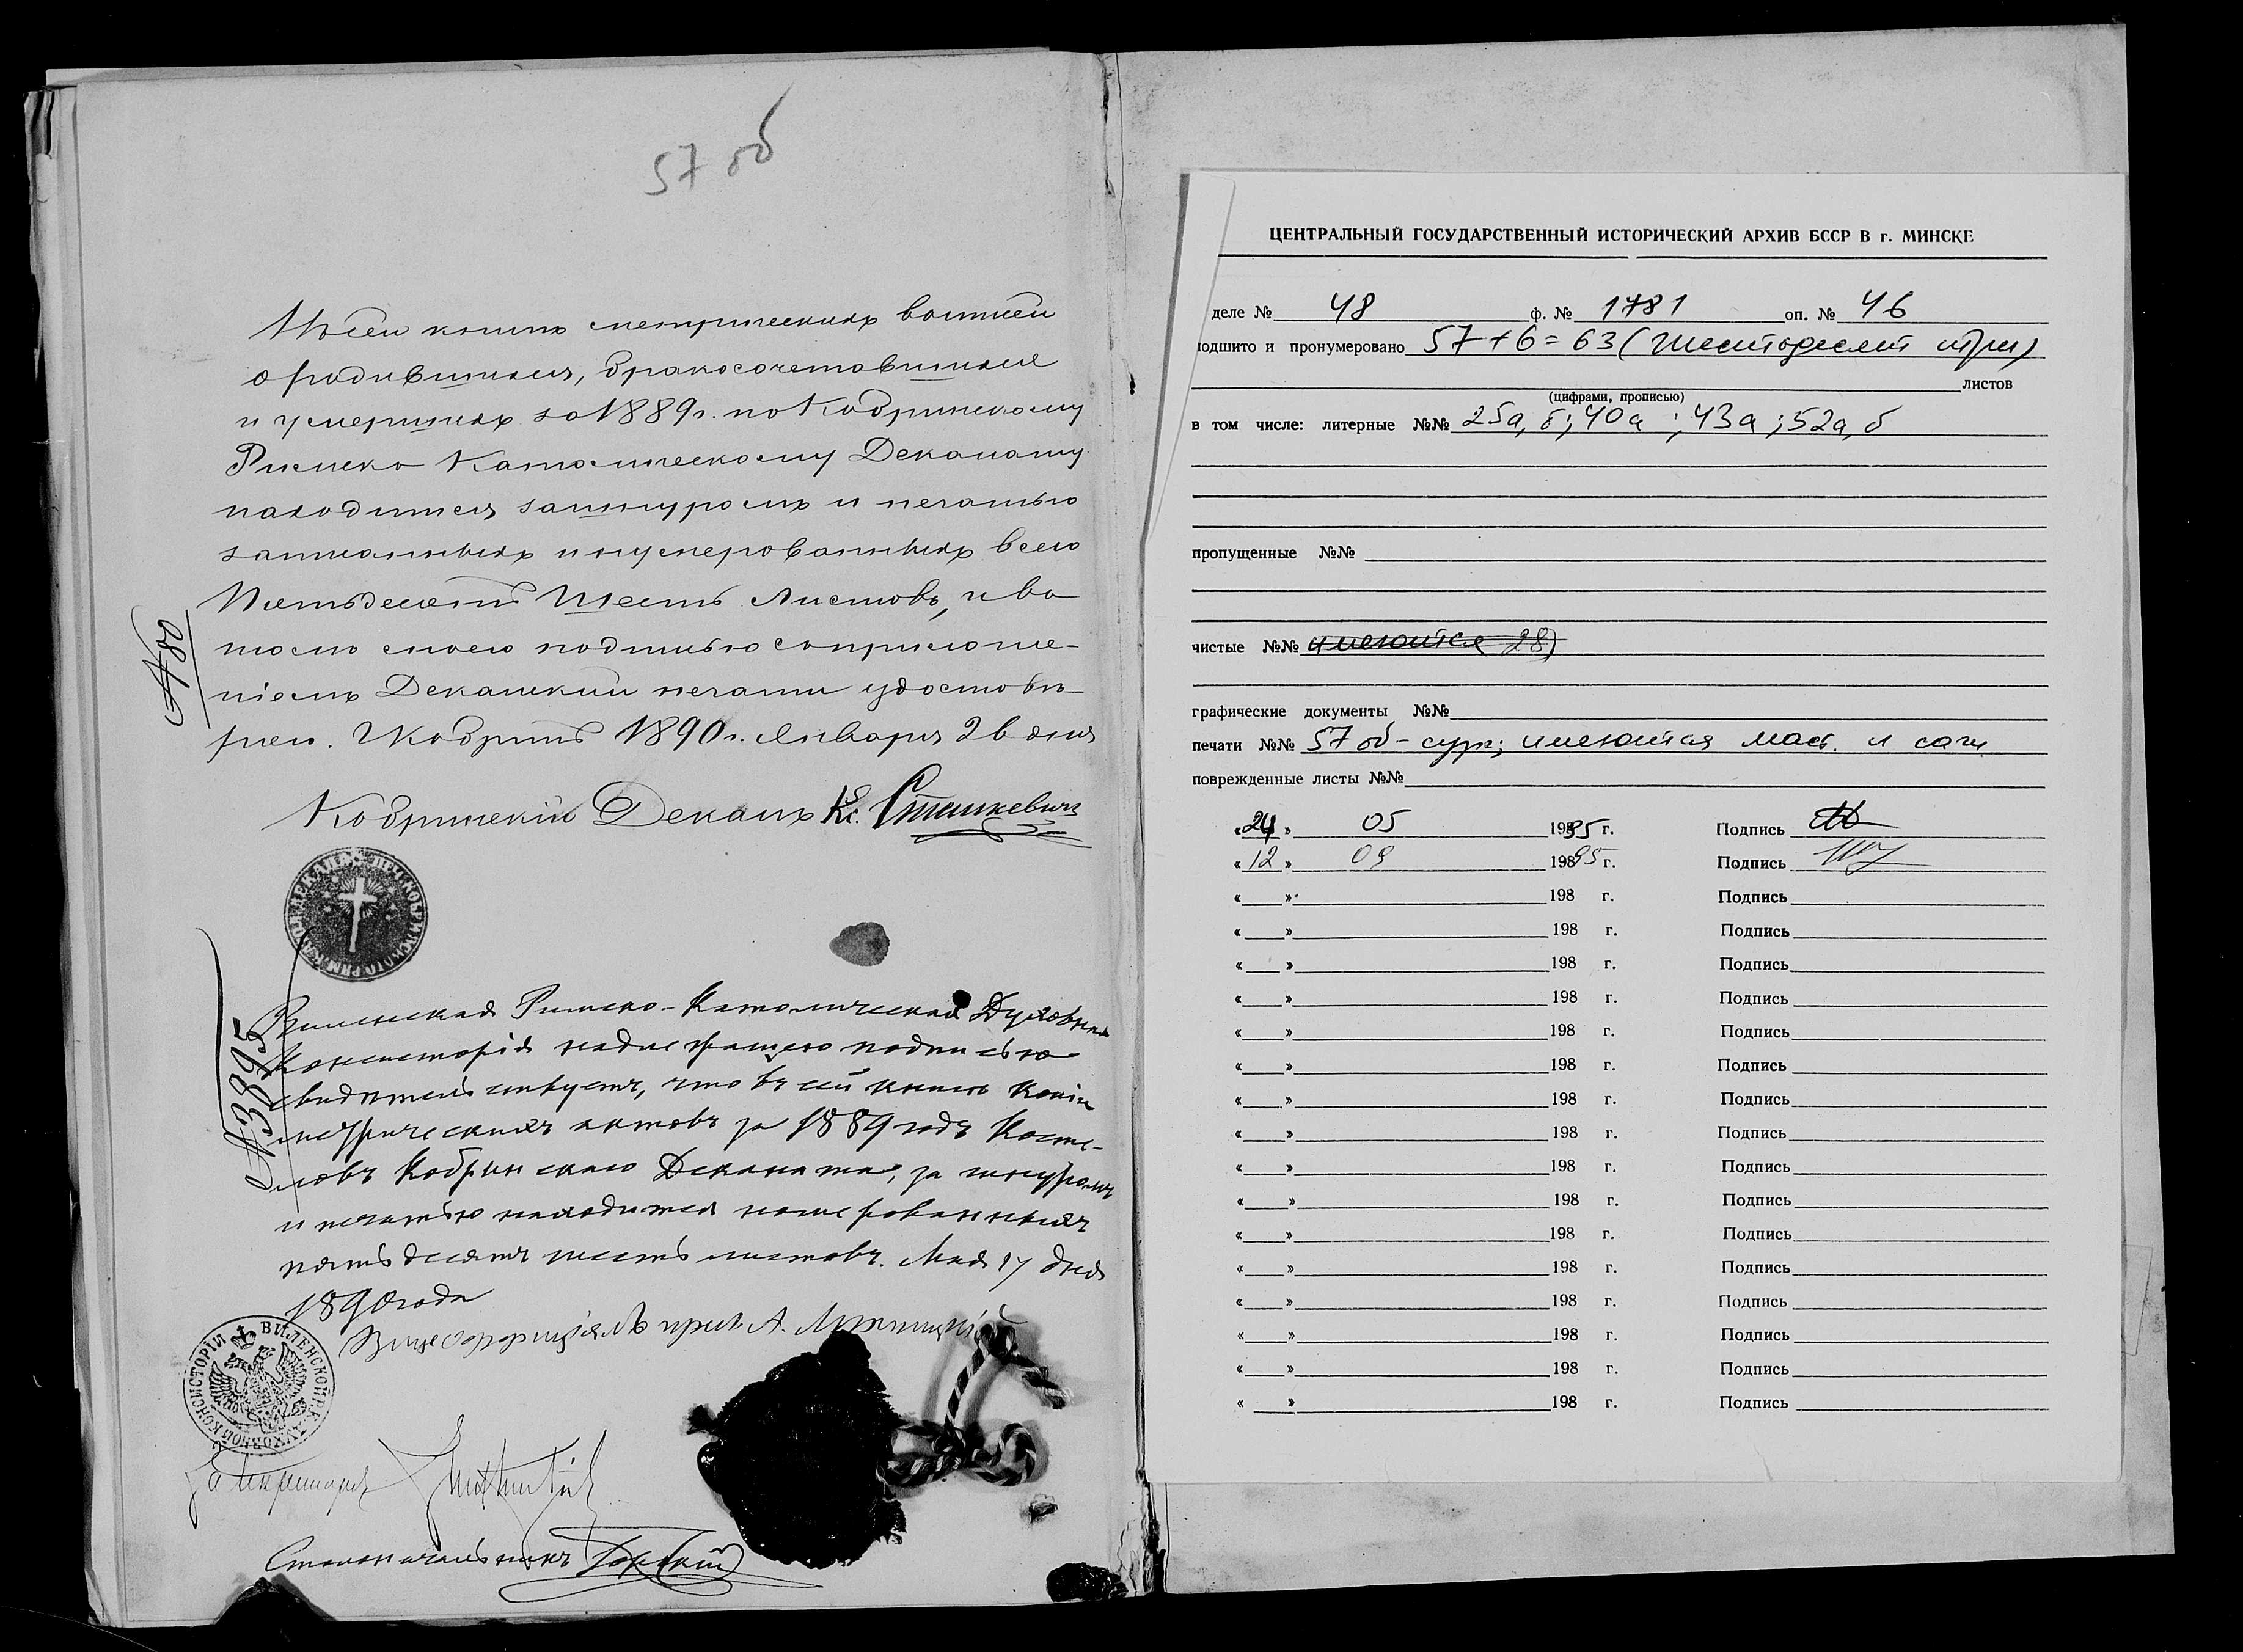 57 об
Въ сей книгѣ метрическихъ выписей
о родившихся, бракосочетавшихся
и умершихъ за 1889 г. по Кобринскому
Римско Католическому Деканату
находится за шнуромъ и печатью
записанныхъ и нумерованныхъ всего
Пятьдесятъ шесть листовъ, и въ
томъ моею подписью съ приложе-
ніемъ Деканской печати удостовѣ-
ряю. Г. Кобринъ 1890 г. Января 2 дня
№ 80
Кобринскій Деканъ Кс. Сташкевичъ
№ 3865
Виленская Римско-Католическая Духовная
Консисторія надлежащею подписью
свидѣтельствуетъ, что въ сей книгѣ копій
метрическихъ актовъ за 1889 годъ Косте-
ловъ Кобринскаго Деканата, за шнуромъ
и печатью находится номерованныхъ
пятьдесятъ шесть листовъ. Мая 17 дня
1890 года
Вицеофиціалъ прел. А.
ВИЛЕНСКОЙ Р. К. ДУХОВНОЙ КОНСИСТОРІИ
За Секретаря
Столоначальникъ
ЦЕНТРАЛЬНЫЙ ГОСУДАРСТВЕННЫЙ ИСТОРИЧЕСКИЙ АРХИВ БССР В г. МИНСКЕ
деле № 48 ф. № 1781 оп. № 46
подшито и пронумеровано 57+6=63 (шестьдесят три)
листов
(цифрами, прописью)
в том числе: литерные №№ 25а, б; 40а; 43а; 52а, б
пропущенные №№
чистые №№ имеются 28)
графические документы №№
печати №№ 57 об - сург; имеются маст. и саж.
поврежденные листы №№
«24» 05 1985 г. Подпись
«12» 09 198 95 г. Подпись
«    » 198   г. Подпись
«    » 198   г. Подпись
«    » 198   г. Подпись
«    » 198   г. Подпись
«    » 198   г. Подпись
«    » 198   г. Подпись
«    » 198   г. Подпись
«    » 198   г. Подпись
«    » 198   г. Подпись
«    » 198   г. Подпись
«    » 198   г. Подпись
«    » 198   г. Подпись
«    » 198   г. Подпись
«    » 198   г. Подпись
«    » 198   г. Подпись
«    » 198   г. Подпись